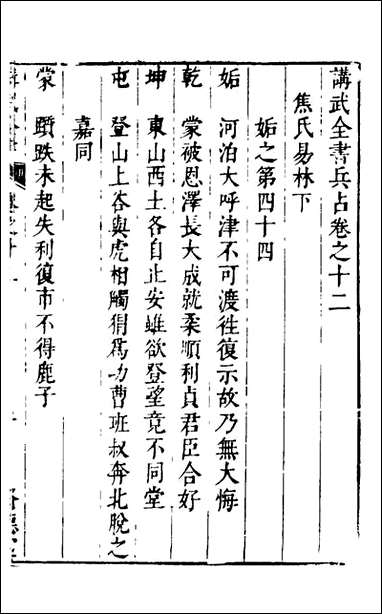 講武全書兵占卷之十二
焦氏易林下
姤之第四十四
姤　河泊大呼津不可渡徃復示故乃無大悔
乾　蒙被恩澤長大成就柔順利貞君臣合好
坤　東山西土各自止安雖欲登望竟不同堂
屯　登山上谷與虎相觸猬為功曹班叔奔北脫之
嘉同
蒙　躓跌未起失利復市不得鹿子